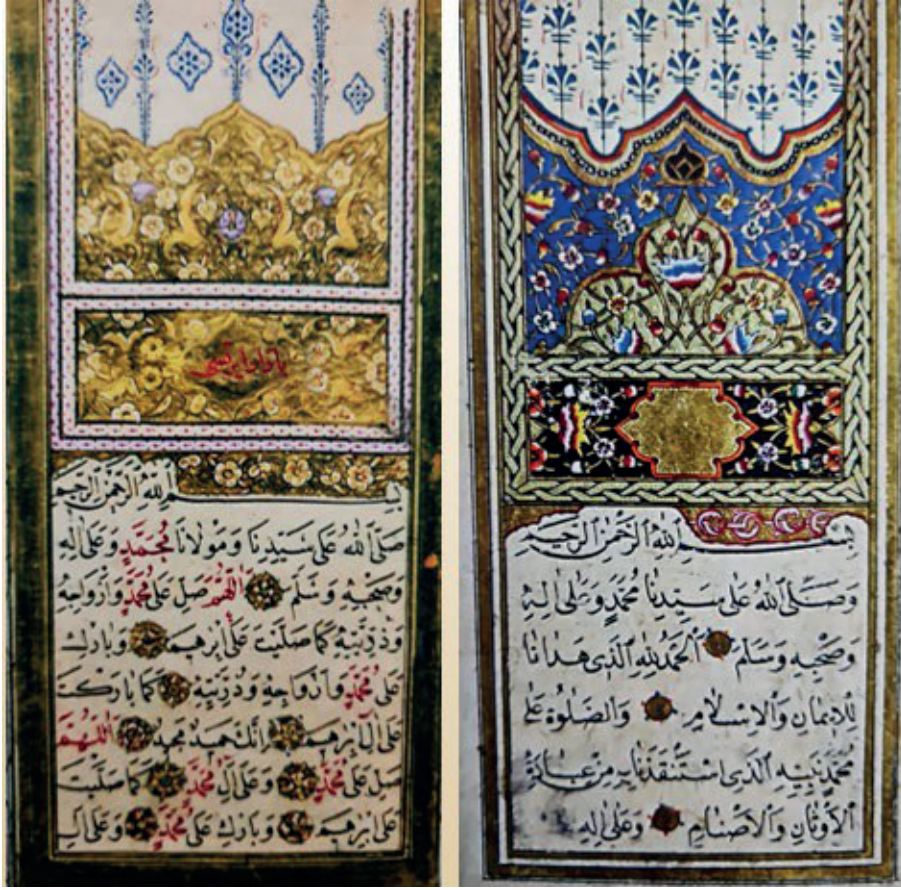 بِسْمِ اللهِ الرَّحْمٰنِ الرَّحِيمِ
وَصَلَّى اللهُ عَلٰى سَيِّدِنَا مُحَمَّدٍ وَعَلٰى اٰلِهٖ
وَصَحْبِهٖ وَسَلَّمَ اَلْحَمْدُ لِلّٰهِ الَّذِى هَدَانَا
لِلْاِيمَانِ وَالْاِسْلَامِ وَالصَّلٰوةُ عَلٰى
مُحَمَّدٍ نَبِيِّهِ الَّذِى اسْتَنْقَذَنَا بِهٖ مِنْ عِبَادَةِ
الْاَوْثَانِ وَالْاَصْنَامِ وَعَلٰى اٰلِهٖ
بِسْمِ اللهِ الرَّحْمٰنِ الرَّحِيمِ
صَلَّى اللهُ عَلٰى سَيِّدِنَا وَمَوْلَانَا مُحَمَّدٍ وَعَلٰى اٰلِهٖ
وَصَحْبِهٖ وَسَلَّمَ اَللّٰهُمَّ صَلِّ عَلٰى مُحَمَّدٍ وَاَزْوَاجِهٖ
وَذُرِّيَّتِهٖ كَمَا صَلَّيْتَ عَلٰى اِبْرٰهِيمَ وَبَارِكْ
عَلٰى مُحَمَّدٍ وَاَزْوَاجِهٖ وَذُرِّيَّتِهٖ كَمَا بَارَكْتَ
عَلٰى اٰلِ اِبْرٰهِيمَ اِنَّكَ حَمِيدٌ مَجِيدٌ اَللّٰهُمَّ
صَلِّ عَلٰى مُحَمَّدٍ وَعَلٰى اٰلِ مُحَمَّدٍ كَمَا صَلَّيْتَ
عَلٰى اِبْرٰهِيمَ وَبَارِكْ عَلٰى مُحَمَّدٍ وَعَلٰى اٰلِ